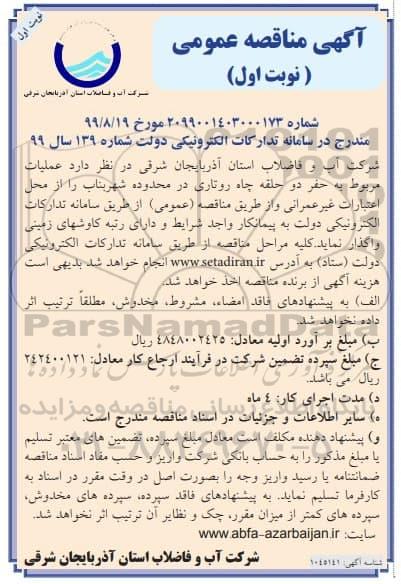 نوبت اول
آگهی مناقصه عمومی
( نوبت اول)
شرکت آب و فاضلاب استان آذربایجان شرقی
شماره ۲۰۹۹۰۰۱۴۰۳۰۰۰۱۷۳ مورخ ۹۹/۸/۱۹
مندرج در سامانه تدارکات الکترونیکی دولت شماره ۱۳۹ سال ۹۹
شرکت آب و فاضلاب استان آذربایجان شرقی در نظر دارد عملیات
مربوط به حفر دو حلقه چاه روتاری در محدوده شهربناب را از محل
اعتبارات غیرعمرانی واز طریق مناقصه (عمومی) از طریق سامانه تدارکات
الکترونیکی دولت به پیمانکار واجد شرایط و دارای رتبه کاوشهای زمینی
واگذار نماید.کلیه مراحل مناقصه از طریق سامانه تدارکات الکترونیکی
دولت (ستاد) به آدرس www.setadiran.ir انجام خواهد شد بدیهی است
هزینه آگهی از برنده مناقصه اخذ خواهد شد.
الف) به پیشنهادهای فاقد امضاء، مشروط، مخدوش، مطلقاً ترتیب اثر
داده نخواهد شد.
ب) مبلغ بر آورد اولیه معادل: ۴۸۴۸۰۰۲۴۲۵ ریال
ج) مبلغ سپرده تضمین شرکت در فرآیند ارجاع کار معادل: ۲۴۲۴۰۰۱۲۱
ریال می باشد.
د) مدت اجرای کار: ۴ ماه
ه) سایر اطلاعات و جزئیات در اسناد مناقصه مندرج است.
و) پیشنهاد دهنده مکلف است معادل مبلغ سپرده، تضمین های معتبر تسلیم
یا مبلغ مذکور را به حساب بانکی شرکت واریز و حسب مفاد اسناد مناقصه
ضمانتنامه یا رسید واریز وجه را بصورت اصل در وقت مقرر در اسناد به
کارفرما تسلیم نماید. به پیشنهادهای فاقد سپرده، سپرده های مخدوش،
سپرده های کمتر از میزان مقرر، چک و نظایر آن ترتیب اثر نخواهد شد.
سایت: www.abfa-azarbaijan.ir
شرکت آب و فاضلاب استان آذربایجان شرقی
شناسه آگهی: ۱۰۴۵۱۴۱
ParsNamadData